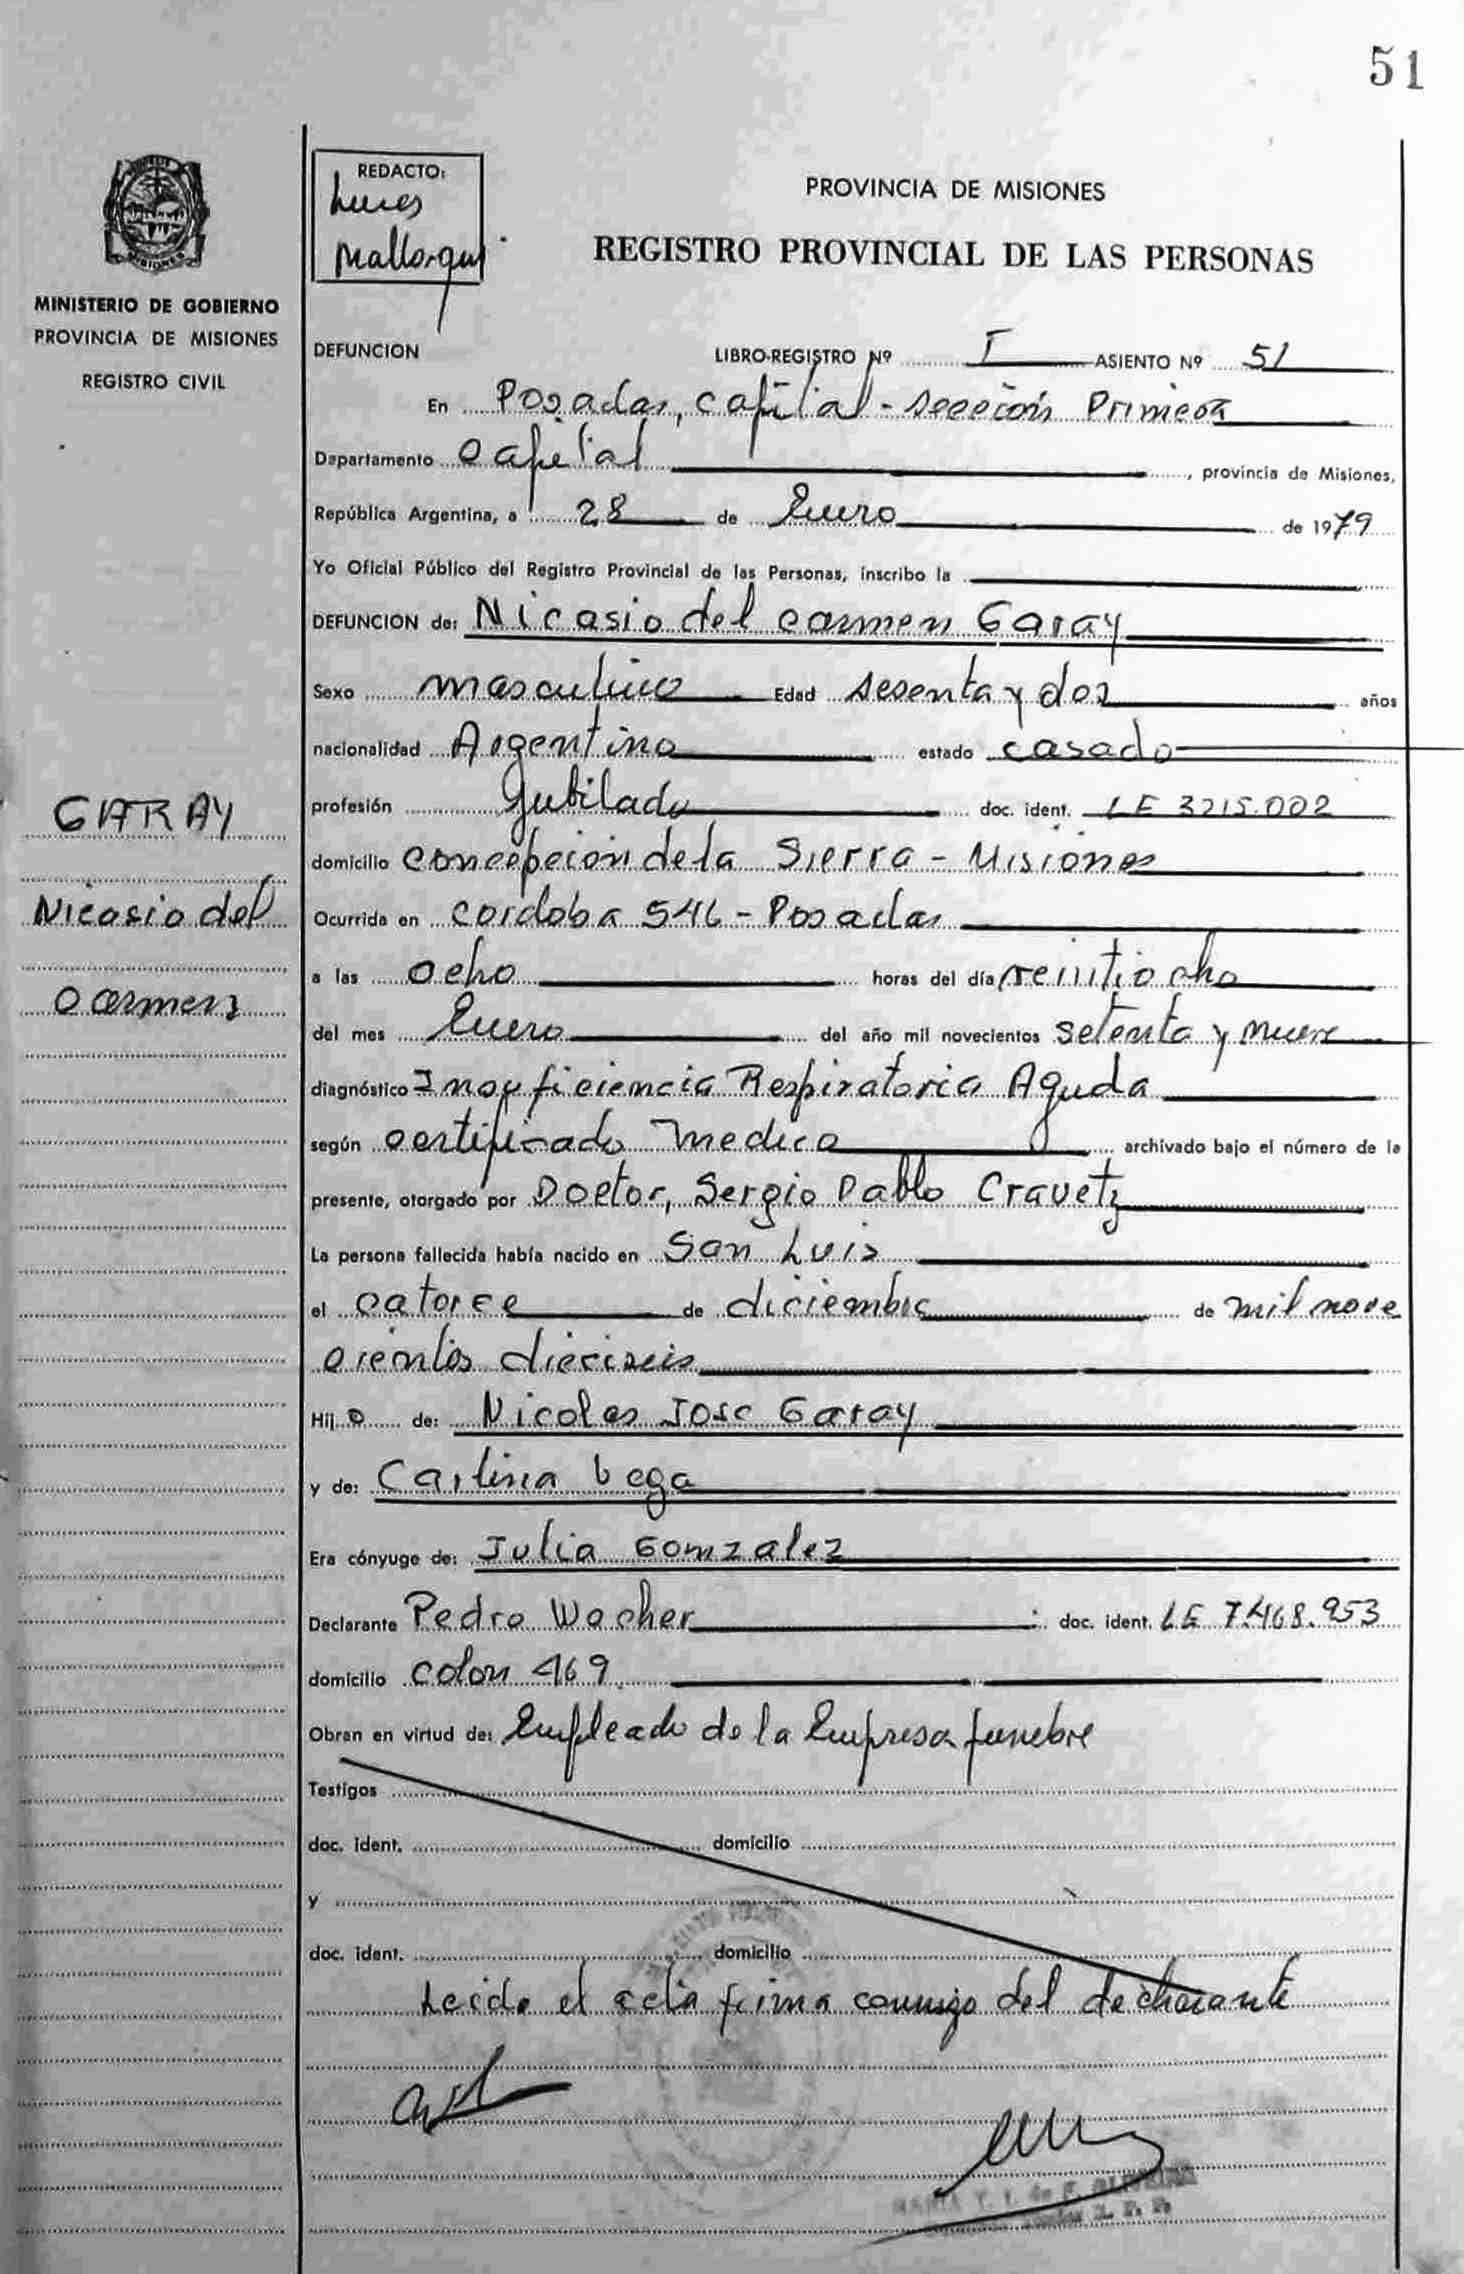 51
REDACTO:
Mallorqui
MINISTERIO DE GOBIERNO
PROVINCIA DE MISIONES
REGISTRO CIVIL
PROVINCIA DE MISIONES
REGISTRO PROVINCIAL DE LAS PERSONAS
DEFUNCION LIBRO-REGISTRO Nº I ASIENTO Nº 51
En Posadas, capital - sección Primera
Departamento capital, provincia de Misiones,
República Argentina, a 28 de Enero de 1979
Yo Oficial Público del Registro Provincial de las Personas, inscribo la
DEFUNCION de: Nicasio del carmen Garay
Sexo masculino Edad sesenta y dos años
nacionalidad Argentina estado casado
profesión Jubilado doc. ident. LE 3215.002
domicilio concepción de la Sierra - Misiones
Ocurrida en cordoba 546 - Posadas
a las ocho horas del día veintiocho
del mes Enero del año mil novecientos setenta y nueve
diagnóstico Insuficiencia Respiratoria Aguda
según certificado medico archivado bajo el número de la
presente, otorgado por Doctor, Sergio Pablo Cravetz
La persona fallecida había nacido en San Luis
el catorce de diciembre de mil nove
cientos dieciseis
Hij o de: Nicolas Jose Garay
y de: Carlina Vega
Era cónyuge de: Julia Gonzalez
Declarante Pedro Wacher doc. ident. LE 7.468.953
domicilio colon 469
Obran en virtud de: Empleado de la Empresa funebre
Testigos
doc. ident. domicilio
y
doc. ident. domicilio
Leida el acta firma conmigo del declarante
GARAY
Nicasio del
carmen